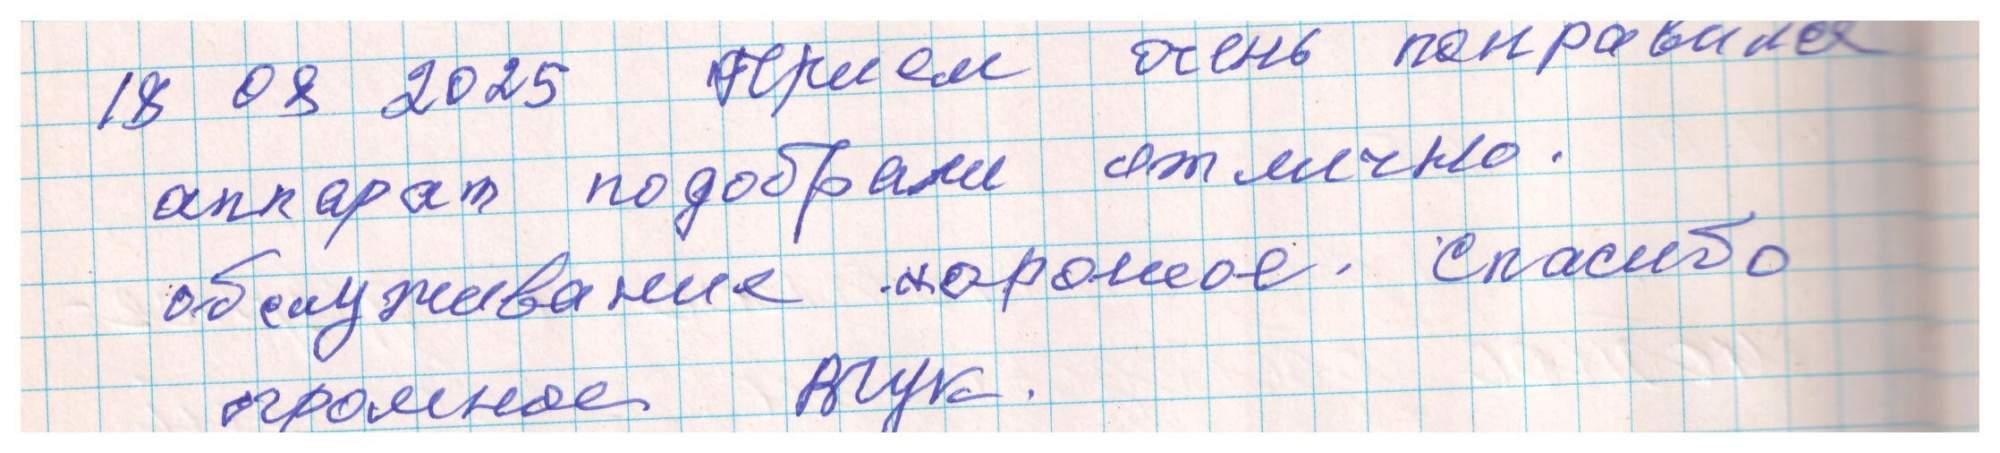 18 08 2025 Прием очень понравился
аппарат подобрали отлично.
обслуживание хорошее. Спасибо
огромное